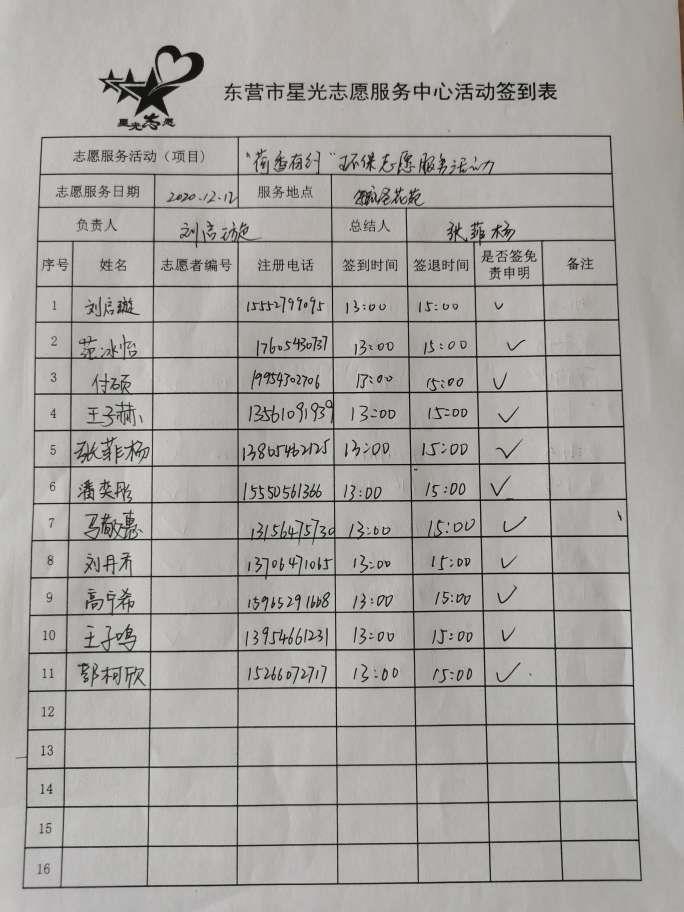 星光志愿
东营市星光志愿服务中心活动签到表
志愿服务活动（项目） "荷香有约"环保志愿服务活动
志愿服务日期 2020.12.12 服务地点 花苑
负责人 刘启璇 总结人 张菲杨
序号 姓名 志愿者编号 注册电话 签到时间 签退时间 是否签免责申明 备注
1 刘启璇 15552799095 13:00 15:00 ✓
2 范冰怡 17605430737 13:00 15:00 ✓
3 付硕 19954302706 13:00 15:00 ✓
4 王子赫 13561091939 13:00 15:00 ✓
5 张菲杨 13805462125 13:00 15:00 ✓
6 潘奕彤 15550561366 13:00 15:00 ✓
7 马敬惠 13156475730 13:00 15:00 ✓
8 刘丹希 13706471065 13:00 15:00 ✓
9 高宁希 15965291668 13:00 15:00 ✓
10 王子鸣 13954661231 13:00 15:00 ✓
11 郭柯欣 15266072717 13:00 15:00 ✓
12
13
14
15
16